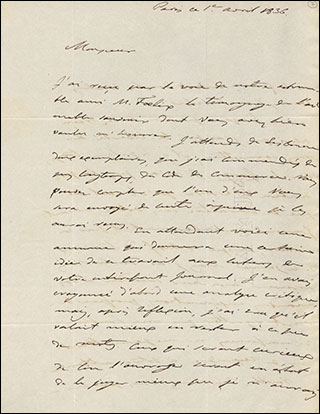 Paris ce 1er avril 1836
Monsieur
J'ai reçu par la voie de notre estima-
ble ami M. Foelix le témoignage de l'ai-
mable souvenir dont vous avez bien
voulu m'honorer. J'attends de Lisbonne
deux exemplaires, que j'ai commandés de-
puis longtemps, du Code de Commerce. Vous
pouvez compter que l'un d'eux vous
sera envoyé de suite que je les
aurai reçus. En attendant voici une
annonce qui donnera une certaine
idée de ce travail aux lecteurs de
votre intéressant Journal. J'en avais
d'abord une analyse critique
mais, après réflexion, j'ai cru qu'il
valait mieux en rester à ce peu
de mots. Ceux qui seront curieux
de lire l'ouvrage seront en état
de le juger mieux que je n'aurais